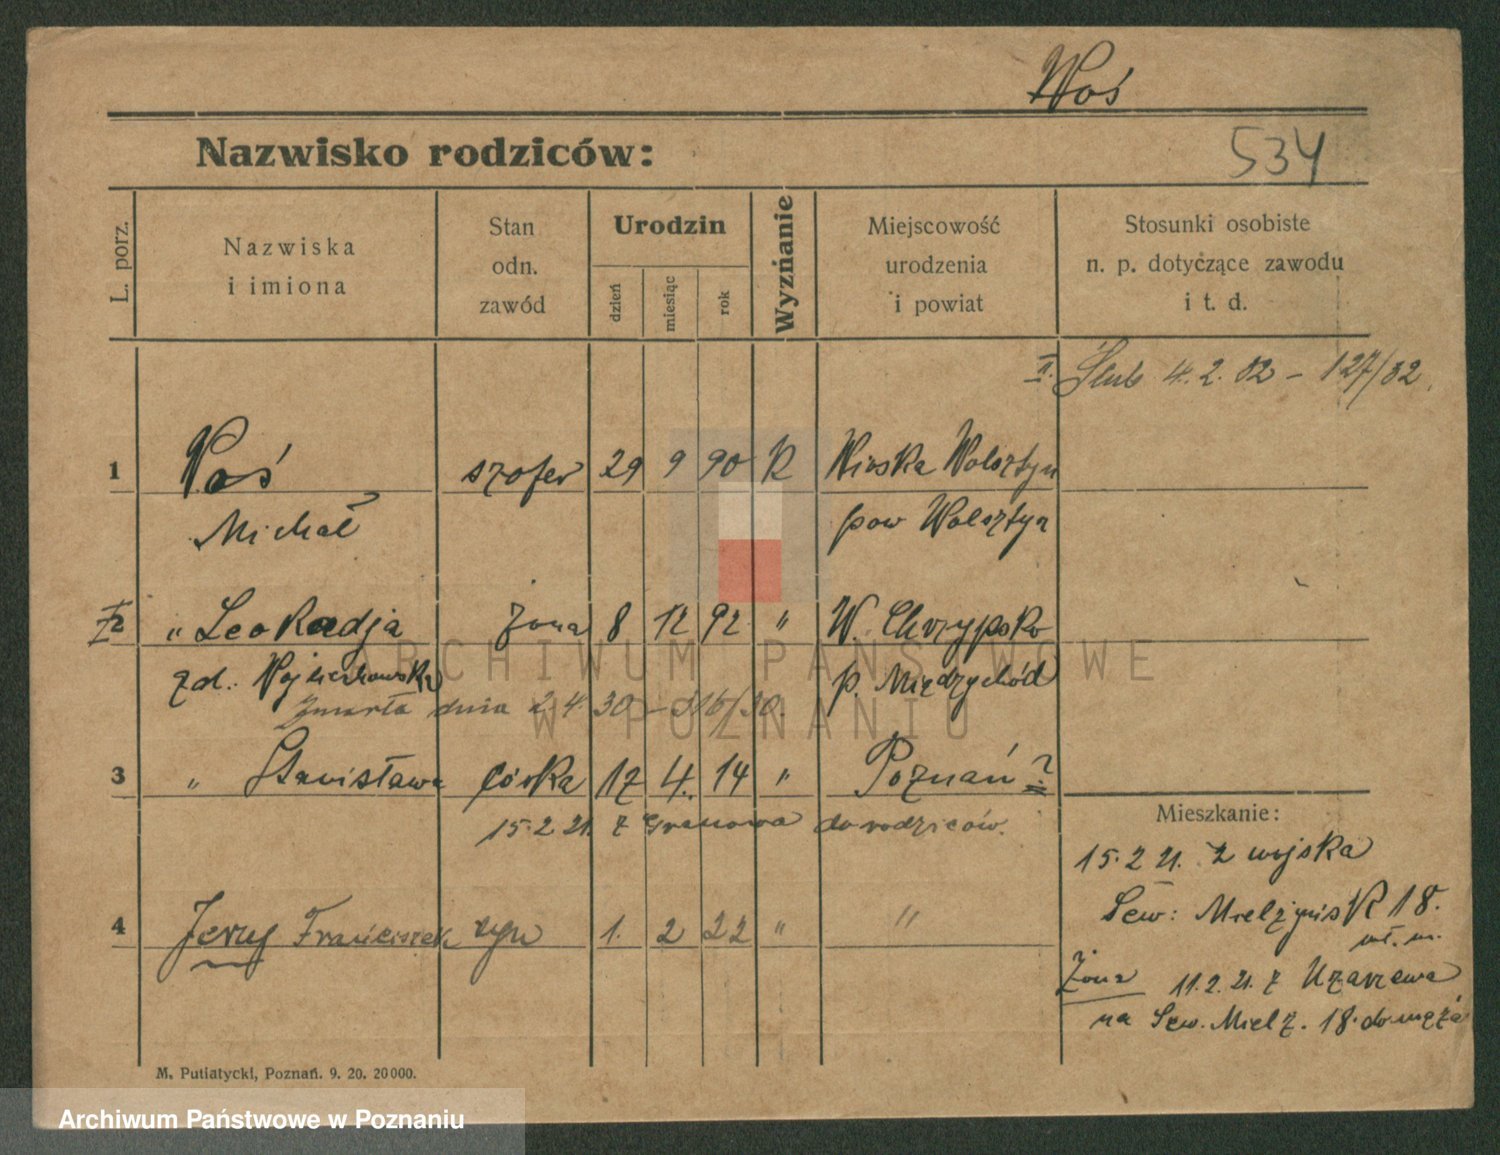 Woś
Nazwisko rodziców:
534
L. porz.
Nazwiska
i imiona
Stan
odn.
zawód
Urodzin
dzień
miesiąc
rok
Wyznánie
Miejscowość
urodzenia
i powiat
Stosunki osobiste
n. p. dotyczące zawodu
i t. d.
II. Ślub 4. 2. 32 – 127/32
1 Woś szofer 29 9 90 K Wioska Wolsztyn
Michał pow Wolsztyn
2 " Leokadja żona 8 12 92 " W. Chrzypsko
zd. Wojciechowska p. Międzychód
Zmarła dnia 2. 4. 30 – 516/30.
3 " Stanisława córka 17 4. 14 " Poznań ?
15. 2 21. z Granowa do rodziców.
Mieszkanie:
15. 2 21. z wojska
Sew: Mielżyńsk 18.
4 Jerzy Franciszek syn 1. 2 22 " "
Żona 11. 2. 21. z Uzarzewa
na Sew. Mielż. 18. do męża
M. Putiatycki, Poznań. 9. 20. 20000.
ARCHIWUM PAŃSTWOWE
W POZNANIU
Archiwum Państwowe w Poznaniu